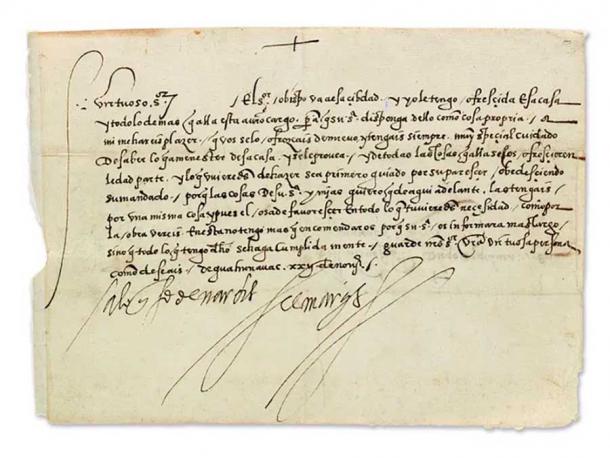 virtuoso sor / El sor obispo va a esa cibdad y yo le tengo ofrescida Esa casa
y todo lo demas q alla esta a uro cargo. pa q su s. disponga dello como cosa propria / a
mi me hareis plazer / q vos se lo ofrezcais de nuevo y tengais siempre muy special cuidado
de saber lo q a menester desa casa. y se le provea / y de todas las cosas q alla se os ofrescieren
le dad parte. y lo q uvieredes de hazer sea primero guiado por su parescer / obedesciendo
su mandado / porq las cosas de su s. y mias quiero q de aqui adelante. las tengais
por una misma cosa y pues el os a de favorescer En todo lo q tuvieredes necesidad / como por
la obra vereis. En esta no tengo mas q encomendaros porq su s. os informara mas largo /
sino q todo lo q tengo dho se haga cumplida mente / guarde nro sr vra virtuosa persona
como deseais. de quahunauac. xxv de
el marqs